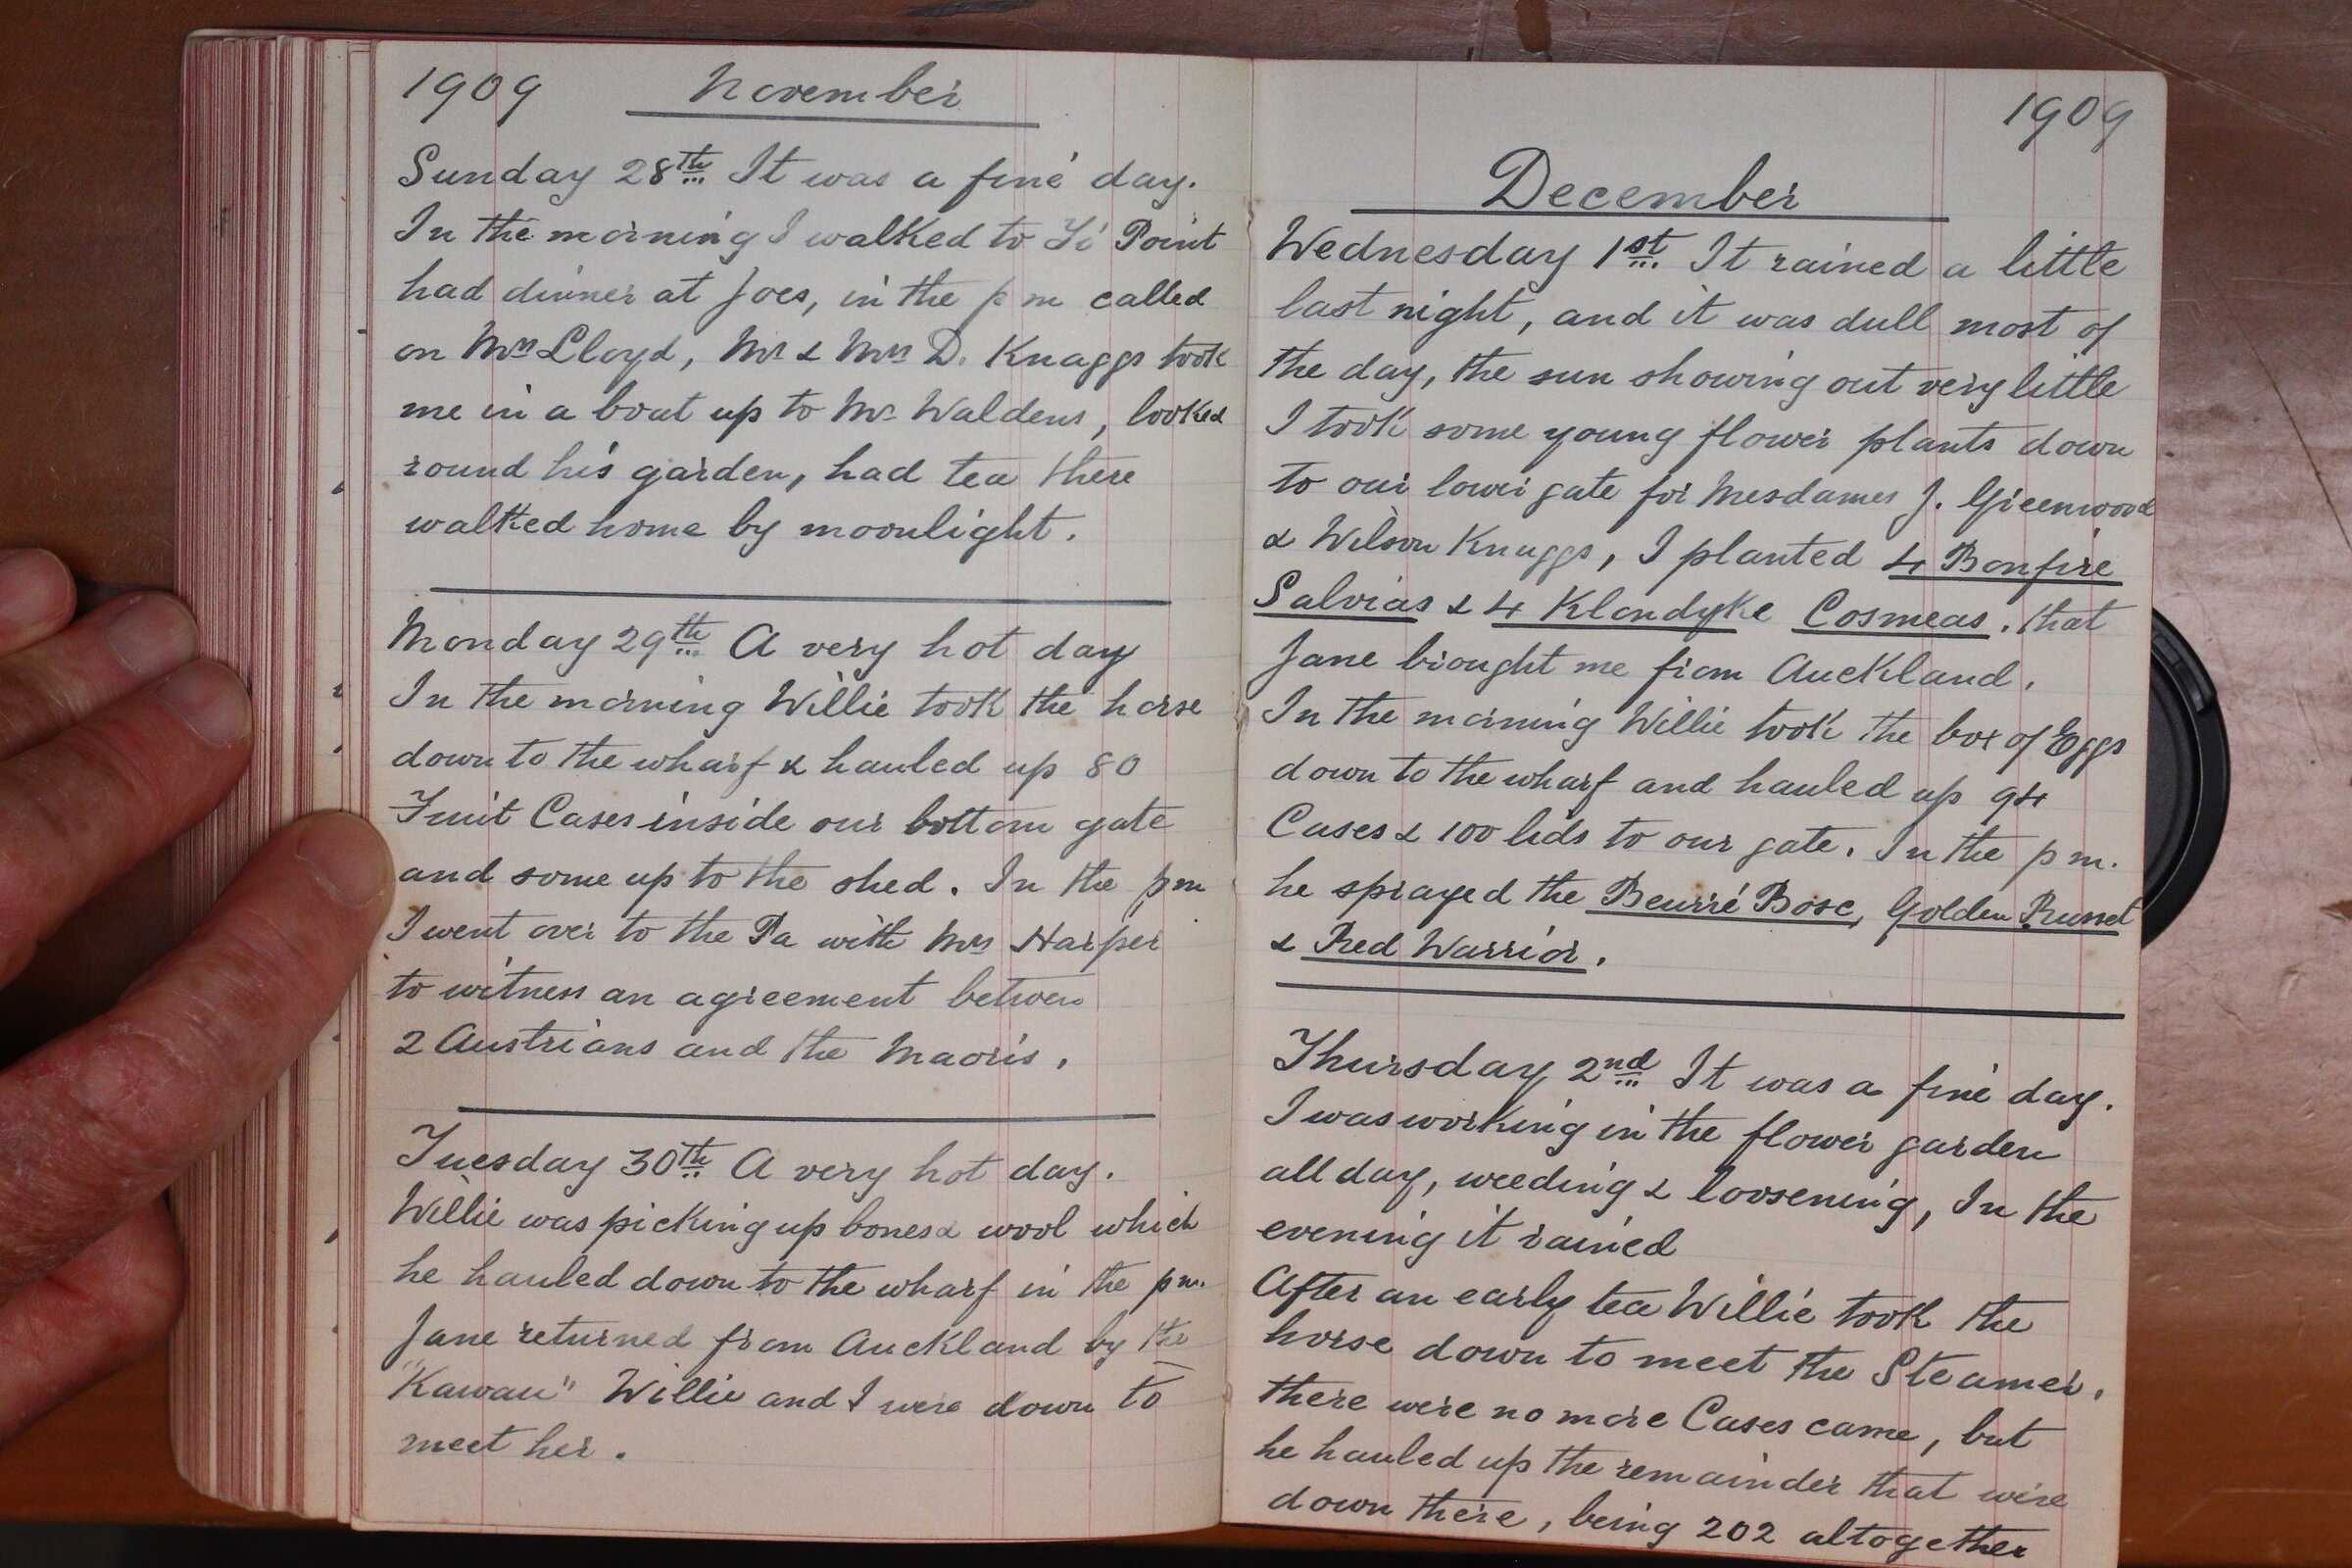 1909 November
Sunday 28th It was a fine day.
In the morning I walked to Ti Point
had dinner at Joes, in the p m called
on Mrs Lloyd, Mr & Mrs D. Knaggs took
me in a boat up to Mr Waldens, looked
round his garden, had tea there
walked home by moonlight.
Monday 29th A very hot day
In the morning Willie took the horse
down to the wharf & hauled up 80
Fruit Cases inside our bottom gate
and some up to the shed. In the pm
I went over to the Pa with Mrs Harper
to witness an agreement betwen
2 Austrians and the Maoris.
Tuesday 30th A very hot day.
Willie was picking up bones & wool which
he hauled down to the wharf in the pm.
Jane returned from Auckland by the
"Kawau" Willie and I were down to
meet her.
1909
December
Wednesday 1st It rained a little
last night, and it was dull most of
the day, the sun showing out very little
I took some young flower plants down
to our lower gate for Mesdames J. Greenwood
& Wilson Knaggs, I planted 4 Bonfire
Salvias & 4 Klondyke Cosmeas. that
Jane brought me from Auckland.
In the morning Willie took the box of Eggs
down to the wharf and hauled up 94
Cases & 100 lids to our gate. In the p m.
he sprayed the Beurré Bosc, Golden Russet
& Red Warrior.
Thursday 2nd It was a fine day.
I was working in the flower garden
all day, weeding & loosening, In the
evening it rained
After an early tea Willie took the
horse down to meet the Steamer.
there were no more Cases came, but
he hauled up the remainder that were
down there, being 202 altogether